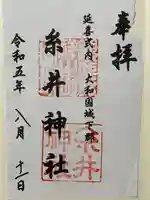 奉拝
延喜式内 大和国城下郡
糸井神社
令和五年 八月 十一日